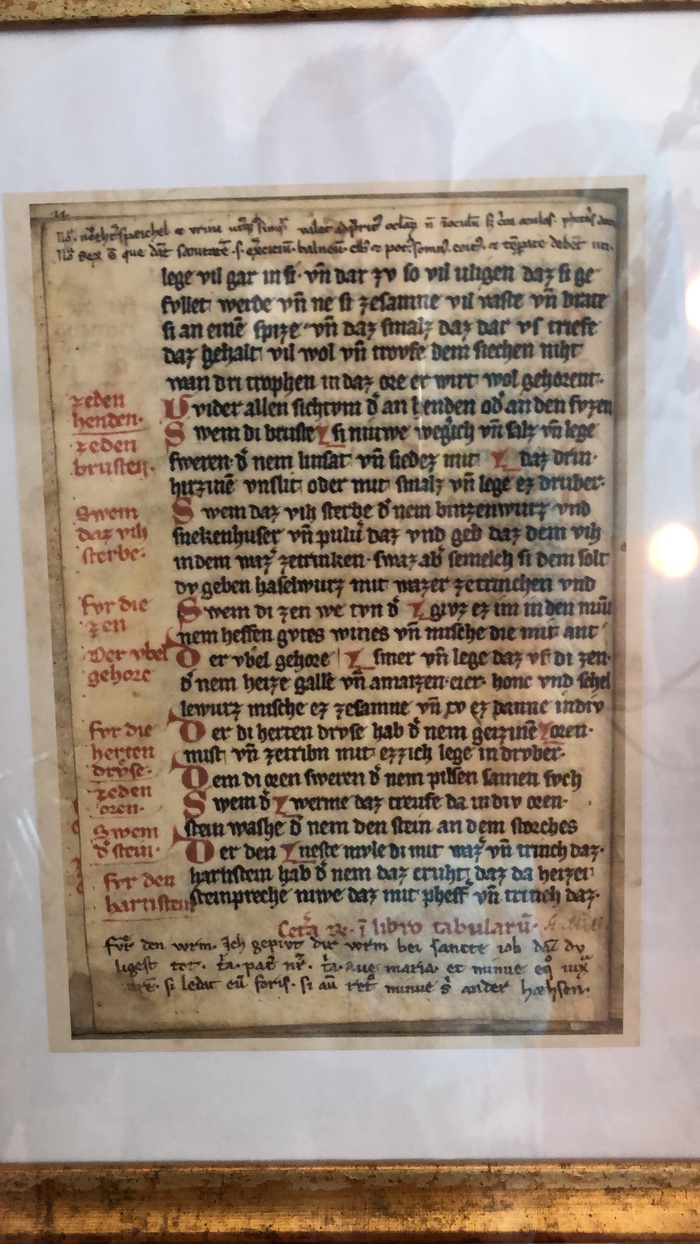 lege vil gar in si· vn̄ dar zv so vil uligen daz si ge
fvllet werde vn̄ ne si zesamne vil vaste vn̄ brate
si an eine spize vn̄ daz smalz daz dar vs triefe
daz gehalt vil wol vn̄ trovfe dem siechen niht
wan dri trophen in daz ore er wirt wol gehorent·
zeden
henden·
Wider allen sichtvm d̄ an henden od̓ an den fvzen
zeden
brusten·
Swem di bruste si niuwe wegich vn̄ salz vn̄ lege
sweren· d̄ nem linsat vn̄ siedez mit daz drin·
hirzinē vnslit oder mit smalz vn̄ lege ez druber·
Swem
daz vih
sterbe·
Swem daz vih sterbe d̄ nem binzenwurz vnd
snekenhuser vn̄ pulu̓ daz vnd geb daz dem vih
in dem waz̓ zetrinken· swaz ab̓ semelch si dem solt
dv geben haselwurz mit wazer zetrinchen vnd
fvr die
zen
Swem di zen we tvn d̄ givz ez im in den mū
nem heffen gvtes wines vn̄ mische die mit ant
Der vbel
gehore
Der vbel gehore siner vn̄ lege daz vf di zen·
d̄ nem heize galle vn̄ amaizen· eier· honc vnd schel
lewurz mische ez zesamne vn̄ tv ez danne indiv
fvr die
herten
drvse·
Der di herten drvse hab d̄ nem geizinē oren·
mist vn̄ zetribn mit ezzich lege in drvber·
zeden
oren·
Dem di oren sweren d̄ nem pilsen samen svch
Swem
d̄ stein·
Swem d̄ werme daz treufe da in div oren·
stein washe d̄ nem den stein an dem storches
fvr den
harnstein
Der den neste mvle di mit waz̓ vn̄ trinch daz·
harnstein hab d̄ nem daz cruht daz da heizet
steinpreche niwe daz mit pheff̓ vn̄ trinch daz·
libro tabularū·
fvr den wrm· Ich gepivt dir wrm bei sancte iob daz dv
ligest tot· pat̄ nr̄· aue maria· et minue
si ledat eū foris· si minue ander hæhsen·